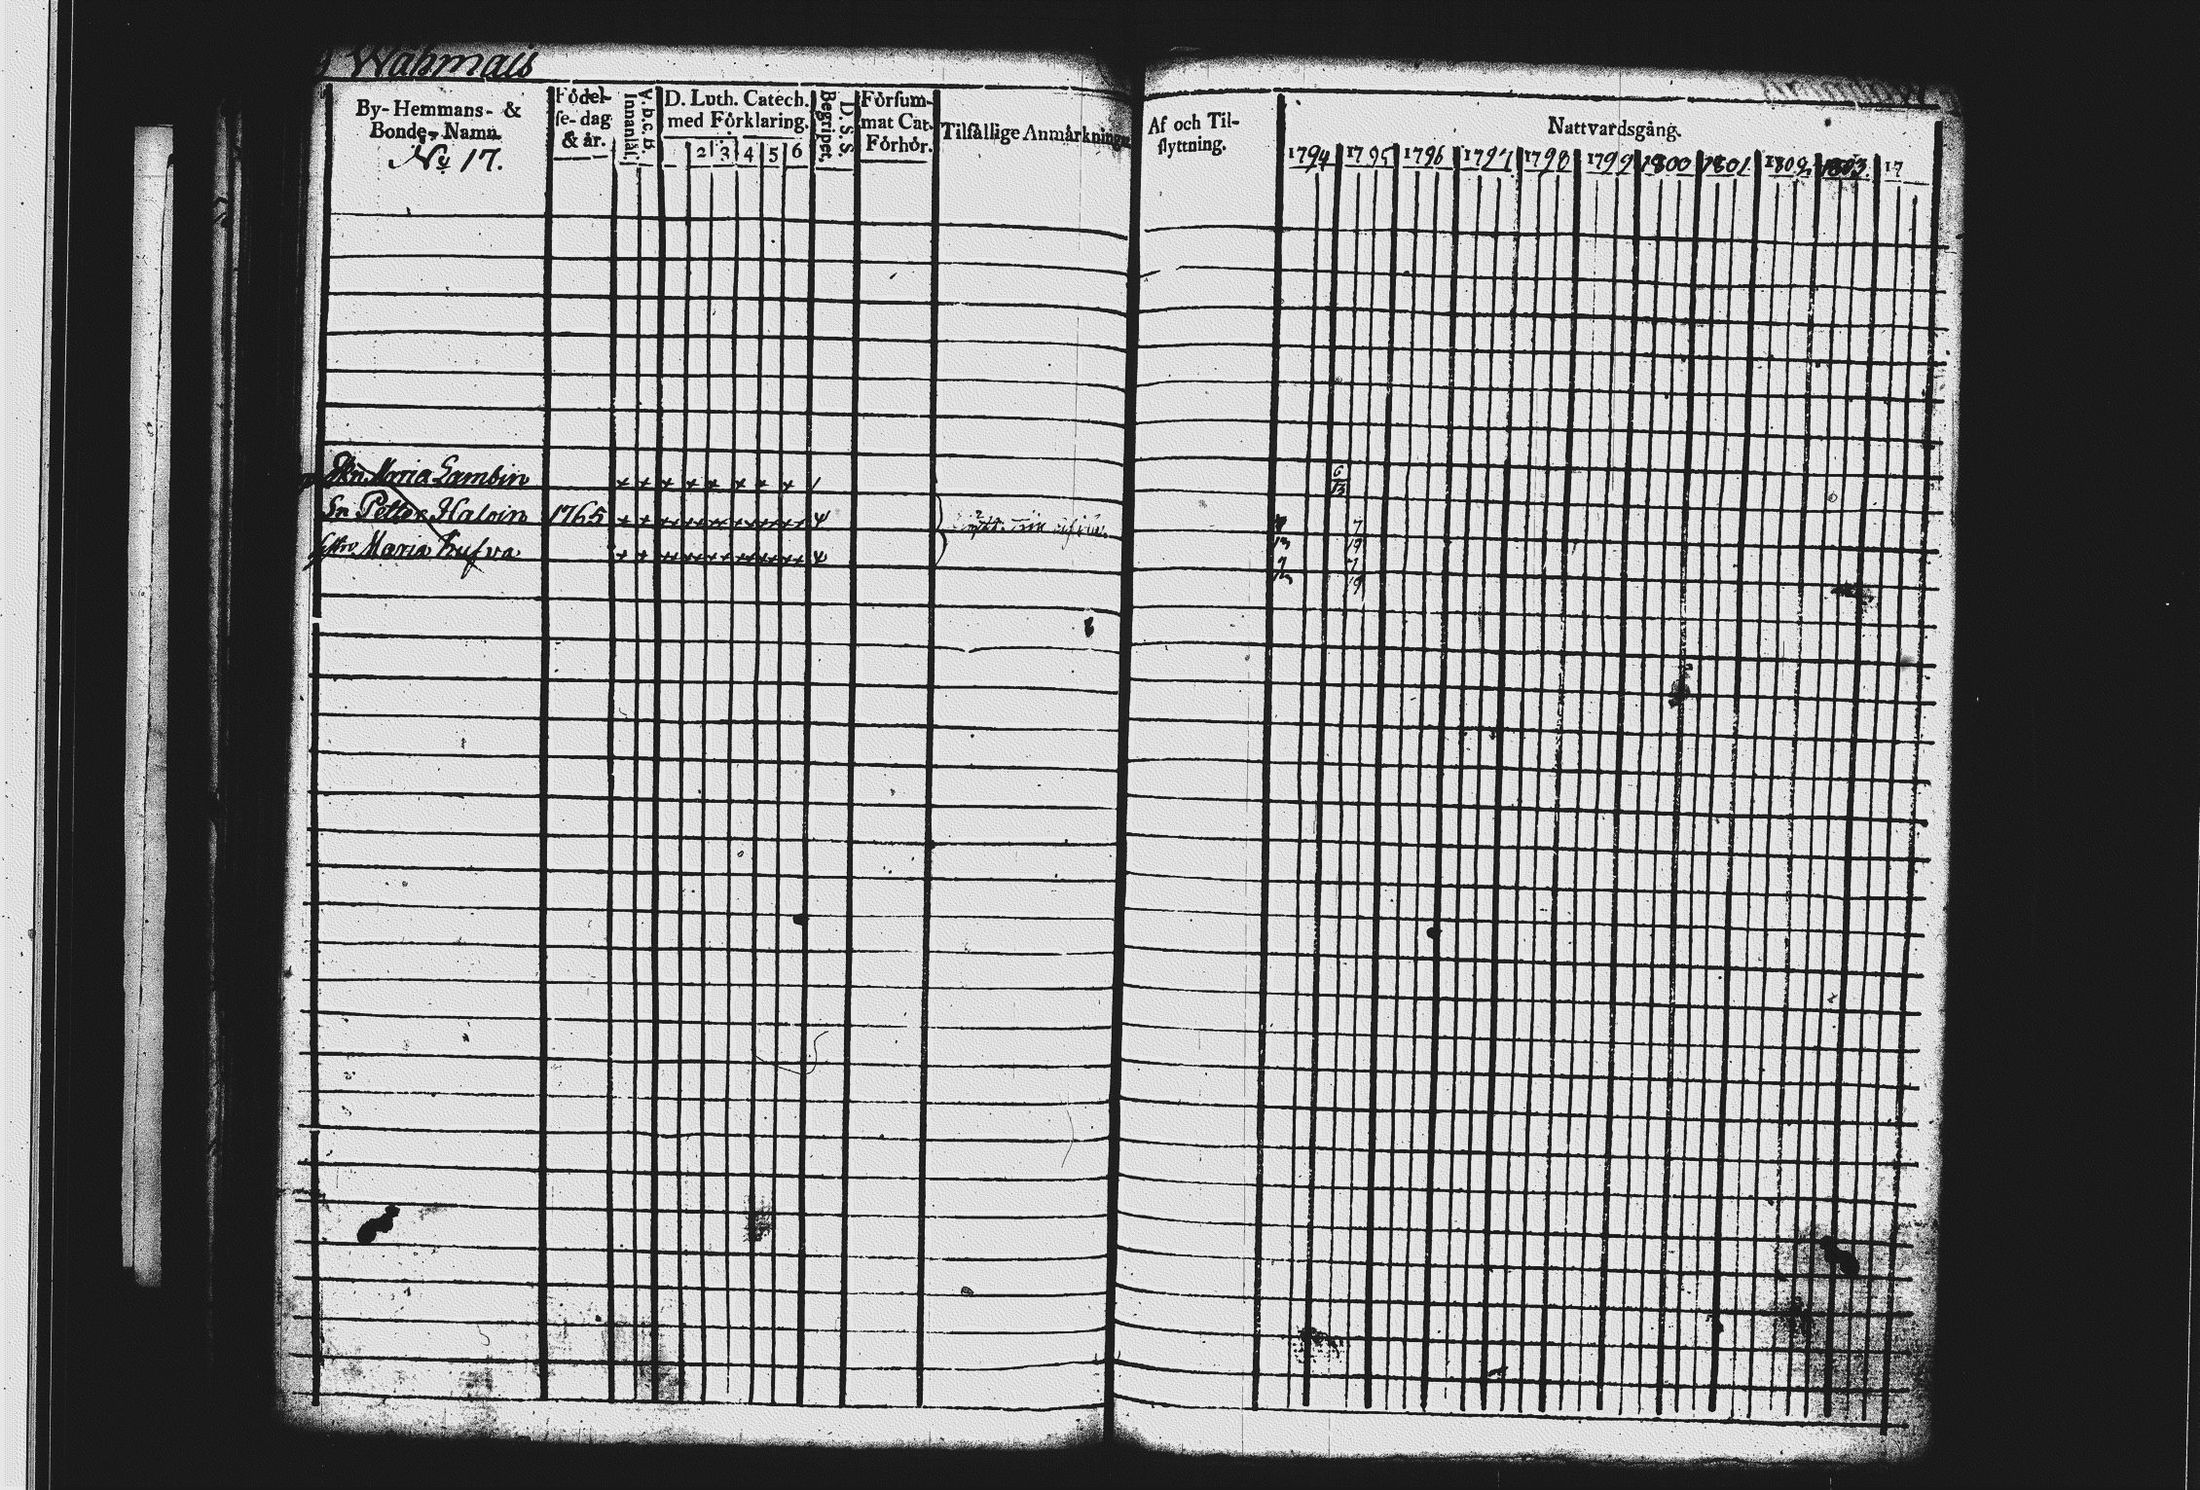 Wähmais
By- Hemmans- &
Bonde- Namn.
No 17.
Födel-
se- dag
& år.
A.b.c.b.
Innanläs.
D. Luth. Catech.
med Förklaring.
2 3 4 5 6
D. S. S.
Begripet.
Försum-
mat Cat.
Förhör.
Tilfällige Anmärkningar
Af och Til-
flyttning.
Nattvardsgång.
1794 1795 1796 1797 1798 1799 1800 1801 1802 1803 17
Maria Lambin
+ + + + + + + + /
6/13
Sn Petter Haloin 1765
7/19
Maria
7/19